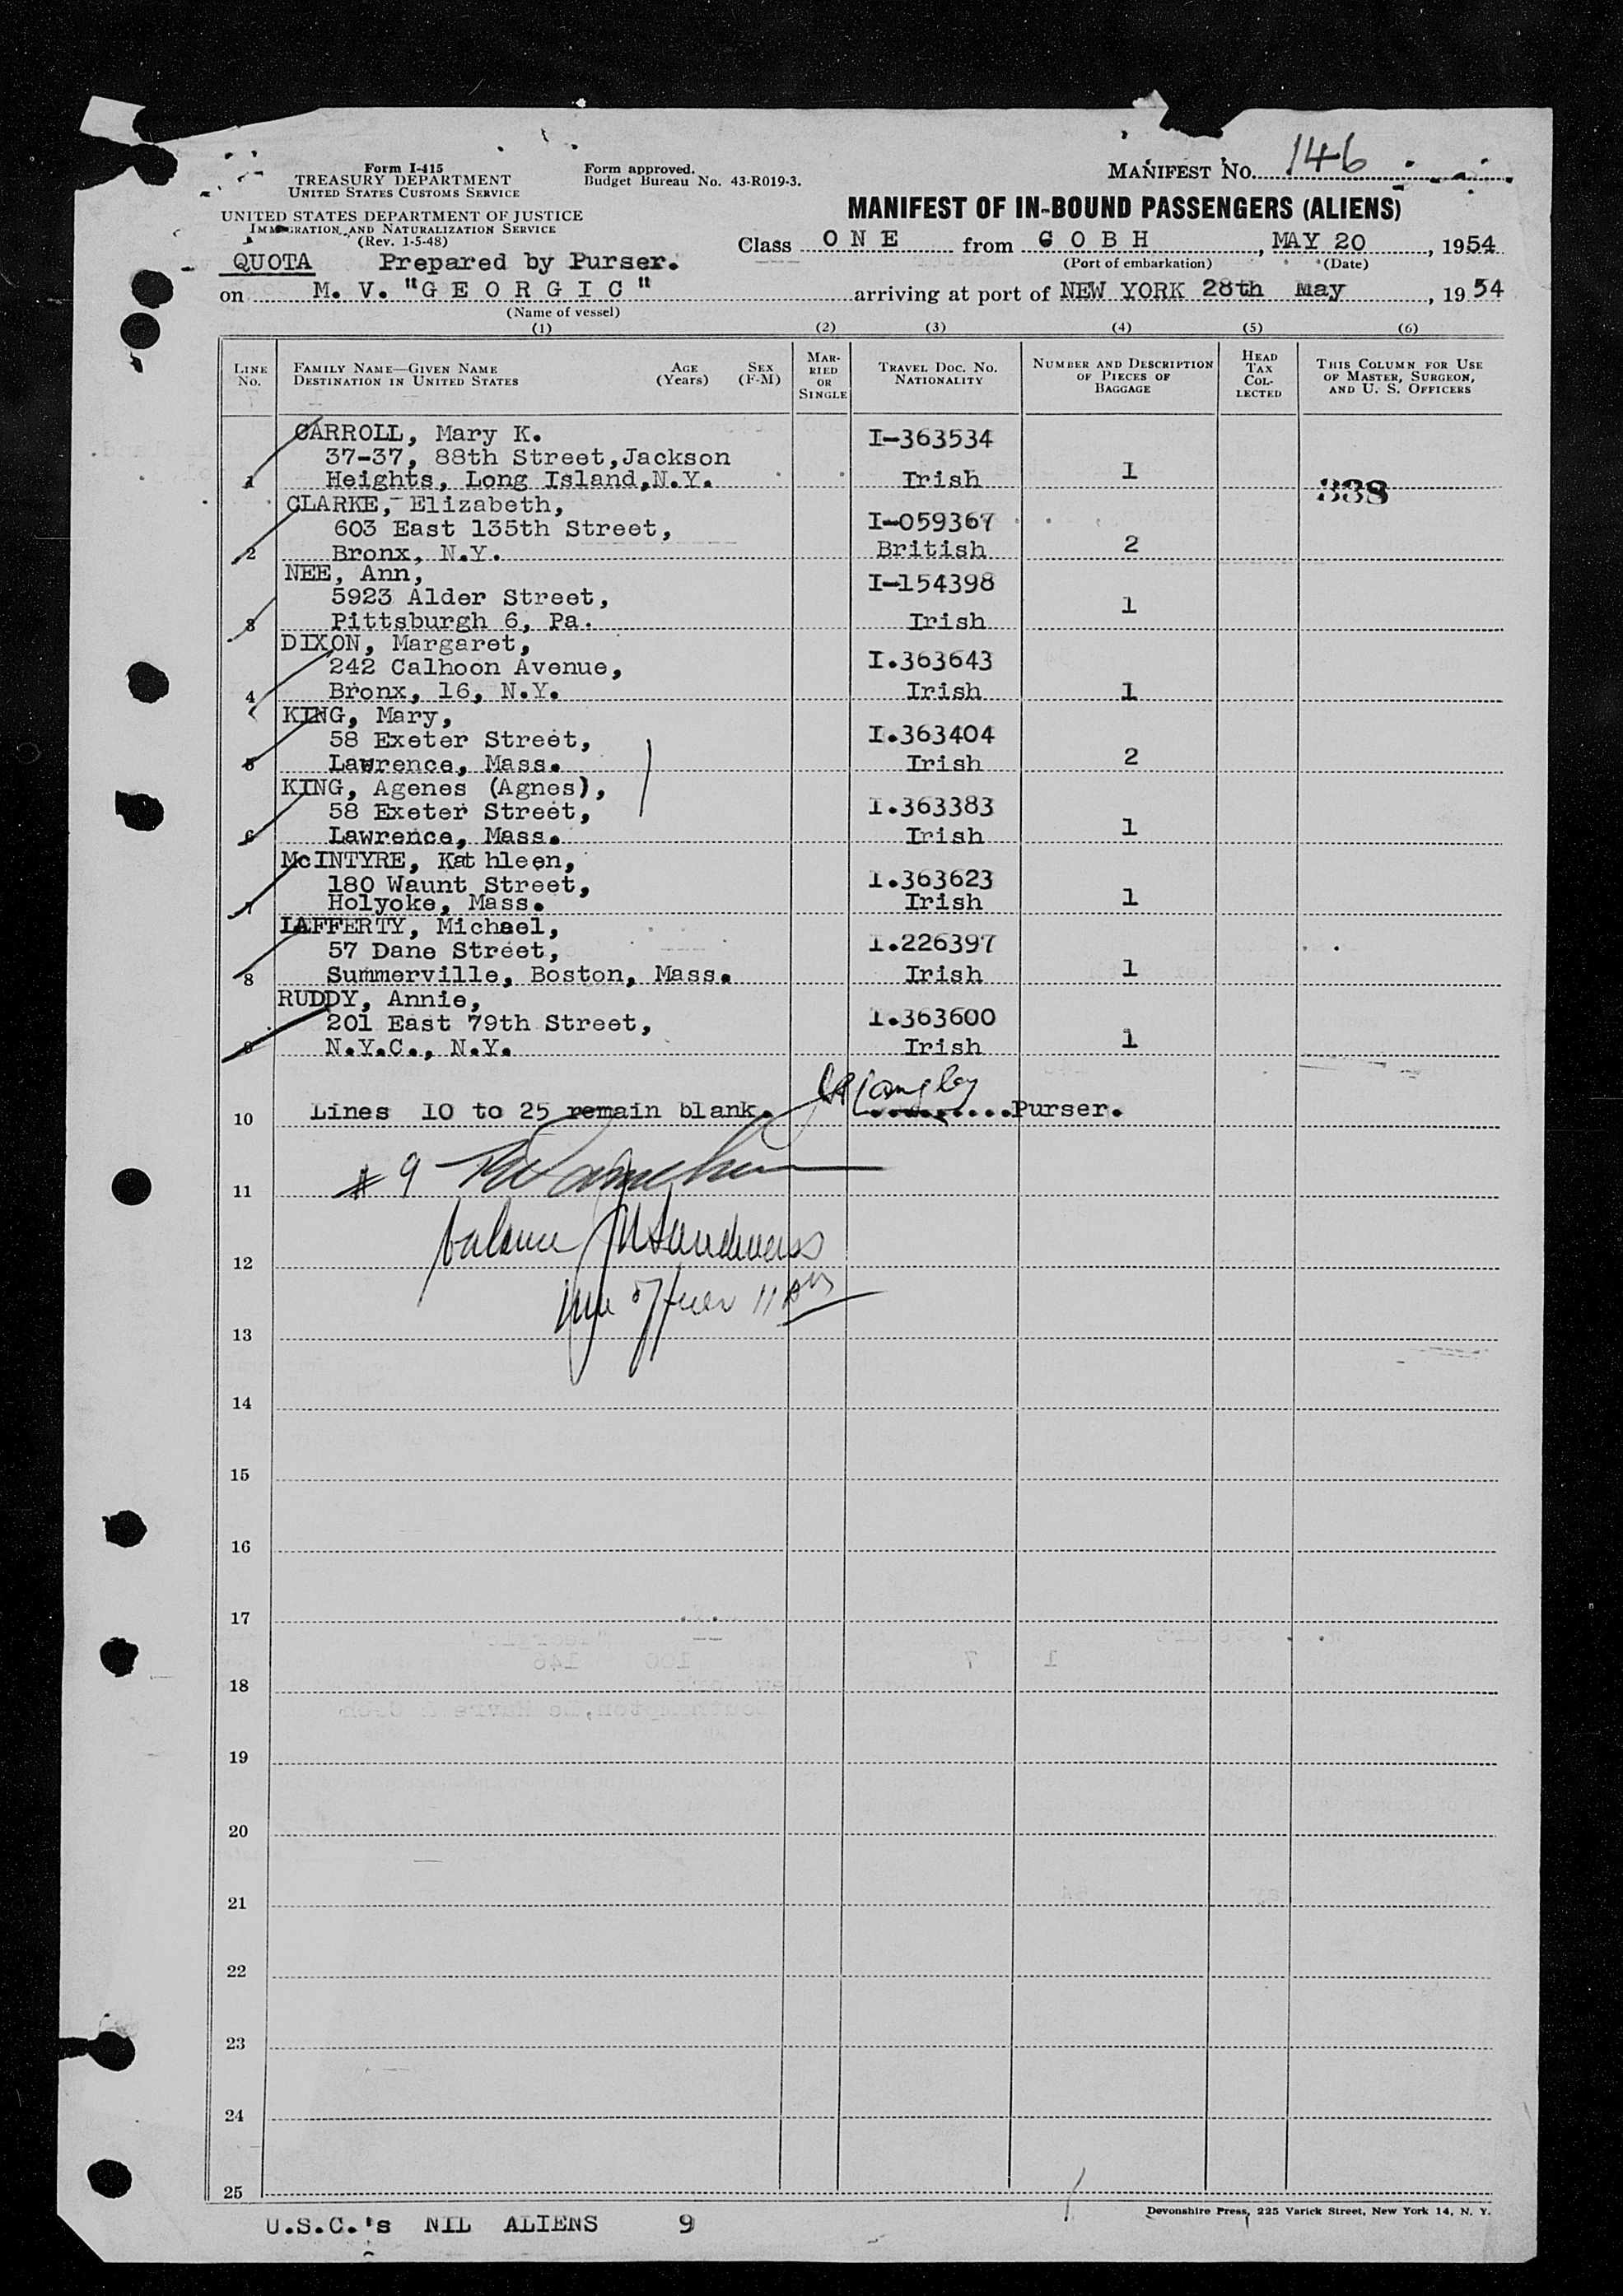 Form I-415
TREASURY DEPARTMENT
UNITED STATES CUSTOMS SERVICE
UNITED STATES DEPARTMENT OF JUSTICE
IMMIGRATION AND NATURALIZATION SERVICE
(Rev. 1-5-48)
Form approved.
Budget Bureau No. 43-R019-3.
MANIFEST NO. 146
MANIFEST OF IN-BOUND PASSENGERS (ALIENS)
Class O N E from C O B H, MAY 20, 1954
(Port of embarkation) (Date)
QUOTA Prepared by Purser.
on M. V. "G E O R G I C" arriving at port of NEW YORK 28th May, 19 54
(Name of vessel)
(1) (2) (3) (4) (5) (6)
LINE NO.
FAMILY NAME—GIVEN NAME AGE SEX
DESTINATION IN UNITED STATES (Years) (F-M)
MARRIED OR SINGLE
TRAVEL DOC. NO. NATIONALITY
NUMBER AND DESCRIPTION OF PIECES OF BAGGAGE
HEAD TAX COLLECTED
THIS COLUMN FOR USE OF MASTER, SURGEON, AND U. S. OFFICERS
CARROLL, Mary K. I-363534
37-37, 88th Street,Jackson
1 Heights, Long Island,N.Y. Irish 1
338
CLARKE, Elizabeth,
603 East 135th Street, I-059367
2 Bronx, N.Y. British 2
NEE, Ann, I-154398
5923 Alder Street,
3 Pittsburgh 6, Pa. Irish 1
DIXON, Margaret,
242 Calhoon Avenue, I.363643
4 Bronx, 16, N.Y. Irish 1
KING, Mary,
58 Exeter Street, I.363404
5 Lawrence, Mass. Irish 2
KING, Agenes (Agnes),
58 Exeter Street, I.363383
6 Lawrence, Mass. Irish 1
McINTYRE, Kat hleen,
180 Waunt Street, I.363623
7 Holyoke, Mass. Irish 1
LAFFERTY, Michael,
57 Dane Street, I.226397
8 Summerville, Boston, Mass. Irish 1
RUDDY, Annie,
201 East 79th Street, I.363600
9 N.Y.C., N.Y. Irish 1
10 Lines 10 to 25 remain blank. ..........Purser.
11 # 9
12
13
14
15
16
17
18
19
20
21
22
23
24
25
Devonshire Press, 225 Varick Street, New York 14, N. Y.
U.S.C.'s NIL ALIENS 9